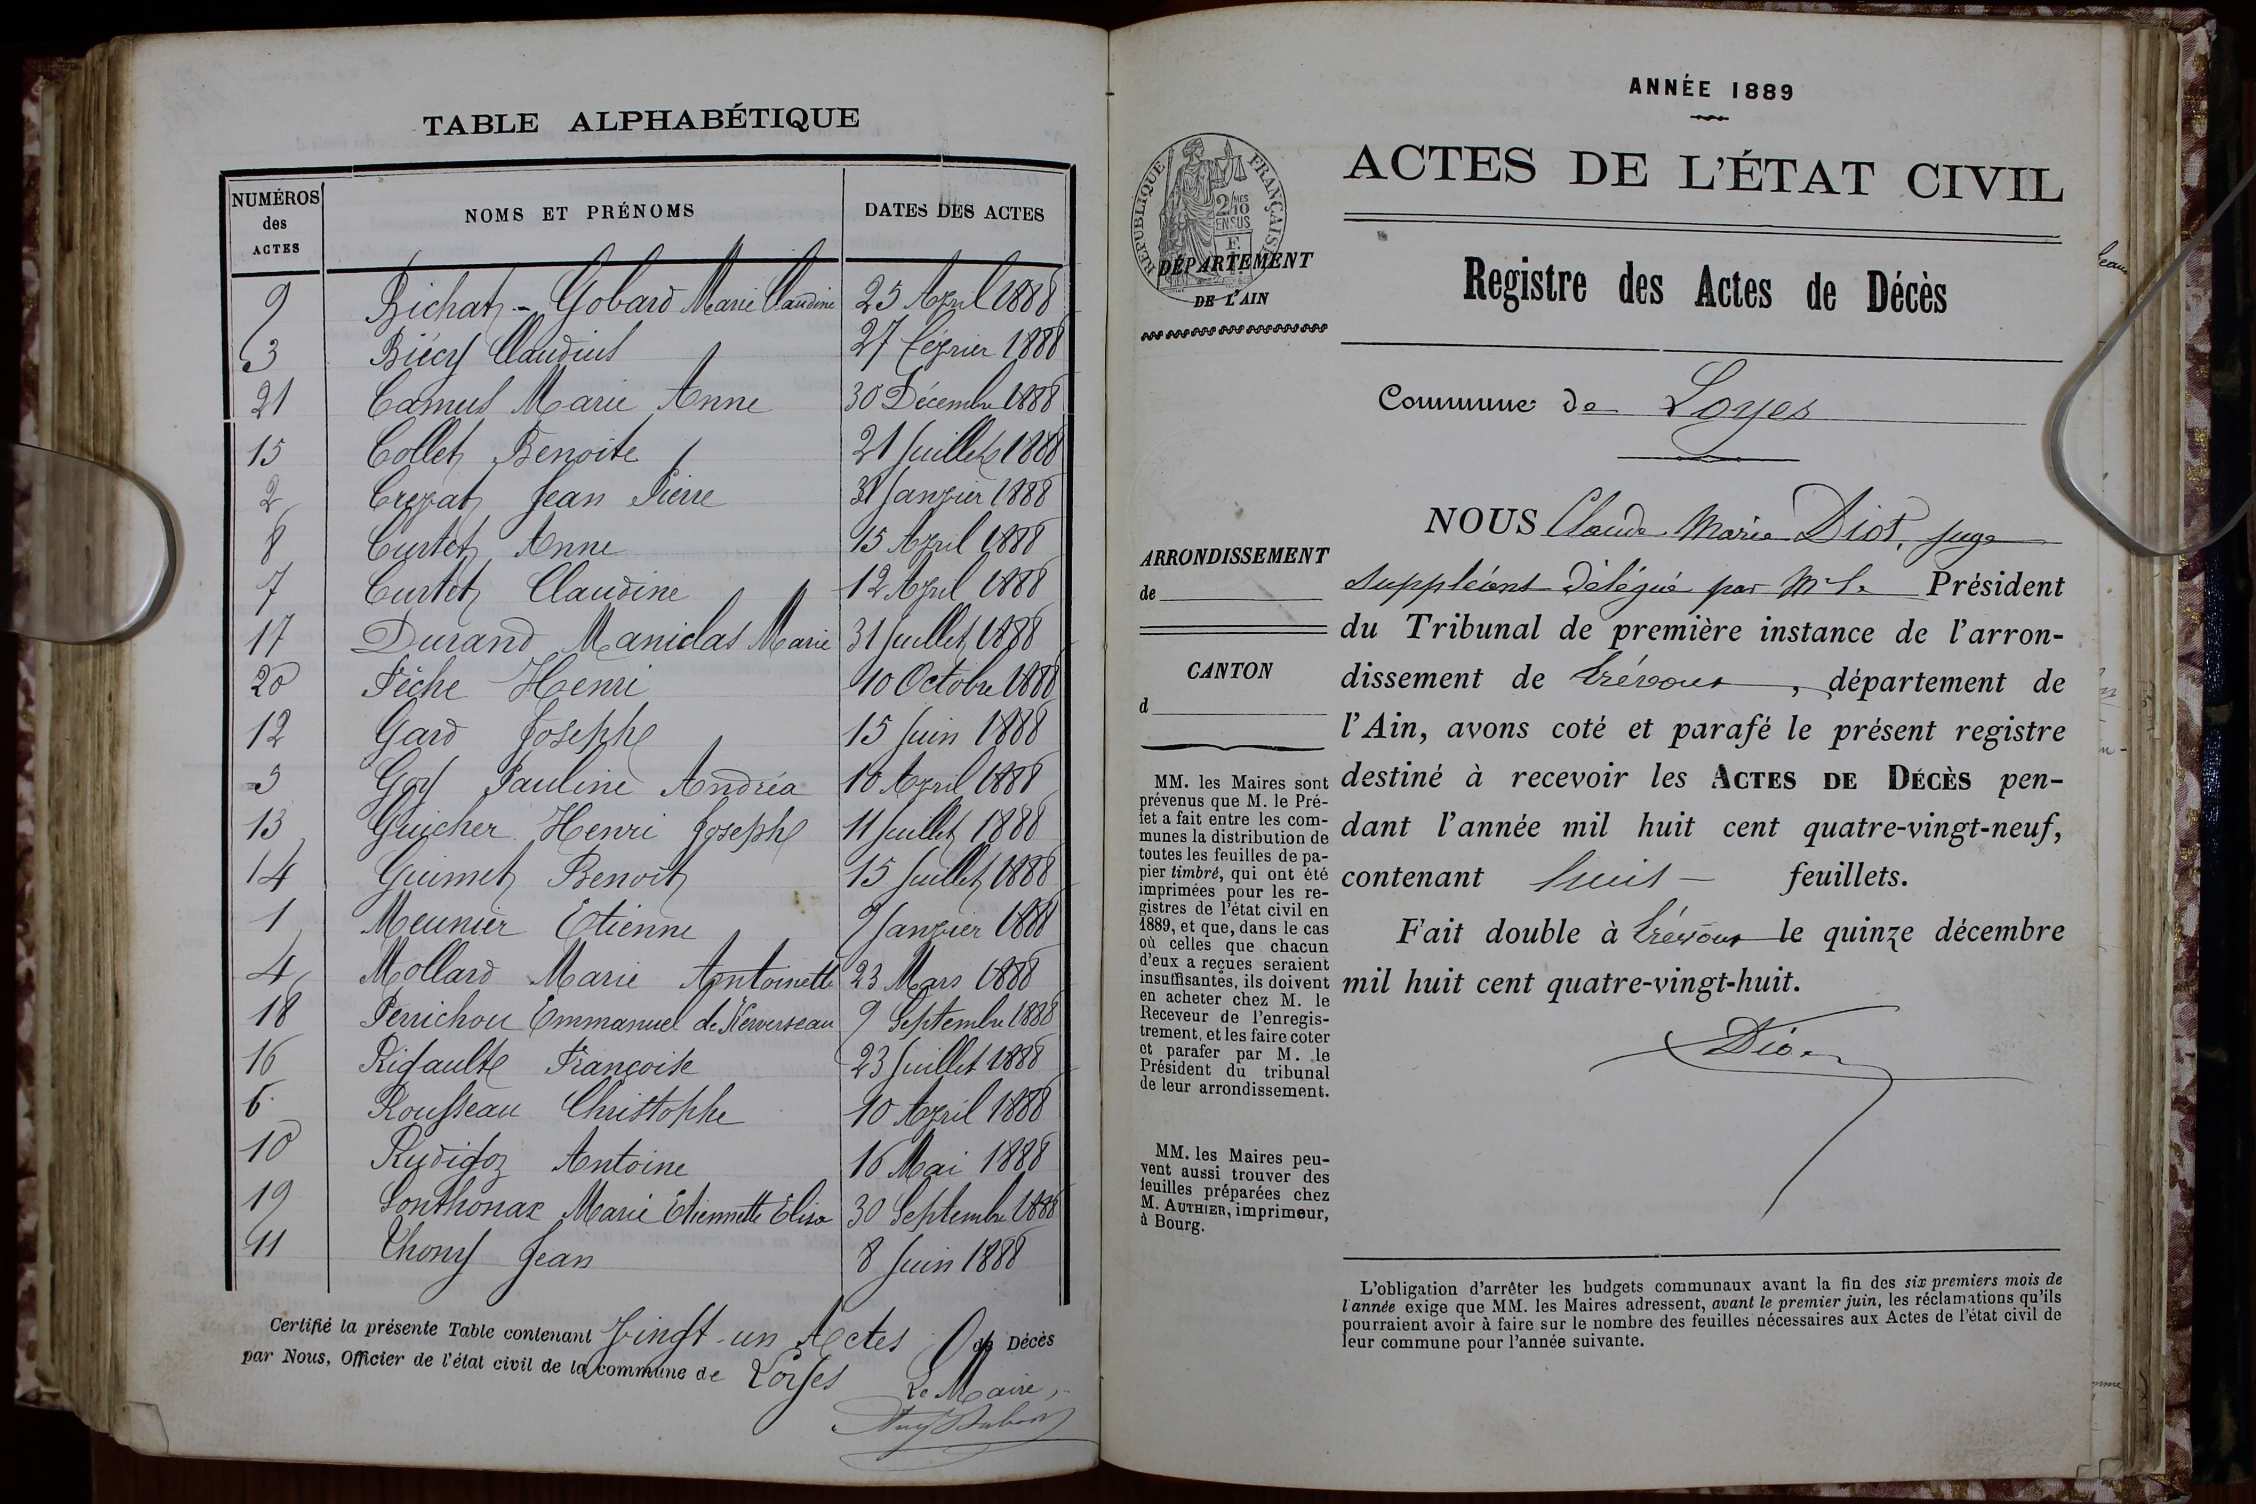 TABLE ALPHABÉTIQUE
NUMÉROS des ACTES NOMS ET PRÉNOMS DATES DES ACTES
9 Bichat - Gobard Marie Claudine 25 Avril 1888
3 Biécy Claudius 27 Février 1888
21 Camus Marie Anne 30 Décembre 1888
15 Collet Benoite 21 Juillet 1888
2 Crevat Jean Pierre 31 Janvier 1888
8 Curtet Anne 15 Avril 1888
7 Curtet Claudine 12 Avril 1888
17 Durand Maniclas Marie 31 Juillet 1888
20 Fêche Henri 10 Octobre 1888
12 Gard Joseph 15 Juin 1888
5 Goy Pauline Andréa 10 Avril 1888
13 Guicher Henri Joseph 11 Juillet 1888
14 Guimet Benoit 15 Juillet 1888
1 Meunier Etienne 7 Janvier 1888
4 Mollard Marie Antoinette 23 Mars 1888
18 Perrichou Emmanuel de Kerverseau 9 Septembre 1888
16 Rigault Françoise 23 Juillet 1888
6 Rousseau Christophe 10 Avril 1888
10 Rudigoz Antoine 16 Mai 1888
19 Sonthonax Marie Etiennette Elisa 30 Septembre 1888
11 Thony Jean 8 Juin 1888
Certifié la présente Table contenant Vingt-un Actes de Décès
par Nous, Officier de l'état civil de la commune de Loyes
Le Maire,
ANNÉE 1889
RÉPUBLIQUE FRANÇAISE
2/10
EN SUS
DÉPARTEMENT
DE L'AIN
ACTES DE L'ÉTAT CIVIL
Registre des Actes de Décès
Commune de Loyes
ARRONDISSEMENT
de
CANTON
d
MM. les Maires sont
prévenus que M. le Pré-
fet a fait entre les com-
munes la distribution de
toutes les feuilles de pa-
pier timbré, qui ont été
imprimées pour les re-
gistres de l'état civil en
1889, et que, dans le cas
où celles que chacun
d'eux a reçues seraient
insuffisantes, ils doivent
en acheter chez M. le
Receveur de l'enregis-
trement, et les faire coter
et parafer par M. le
Président du tribunal
de leur arrondissement.
MM. les Maires peu-
vent aussi trouver des
feuilles préparées chez
M. AUTHIER, imprimeur,
à Bourg.
NOUS Claude Marie Diot, juge
suppléant délégué par Mr le Président
du Tribunal de première instance de l'arron-
dissement de Trévoux, département de
l'Ain, avons coté et parafé le présent registre
destiné à recevoir les ACTES DE DÉCÈS pen-
dant l'année mil huit cent quatre-vingt-neuf,
contenant huit feuillets.
Fait double à Trévoux le quinze décembre
mil huit cent quatre-vingt-huit.
Diot
L'obligation d'arrêter les budgets communaux avant la fin des six premiers mois de
l'année exige que MM. les Maires adressent, avant le premier juin, les réclamations qu'ils
pourraient avoir à faire sur le nombre des feuilles nécessaires aux Actes de l'état civil de
leur commune pour l'année suivante.